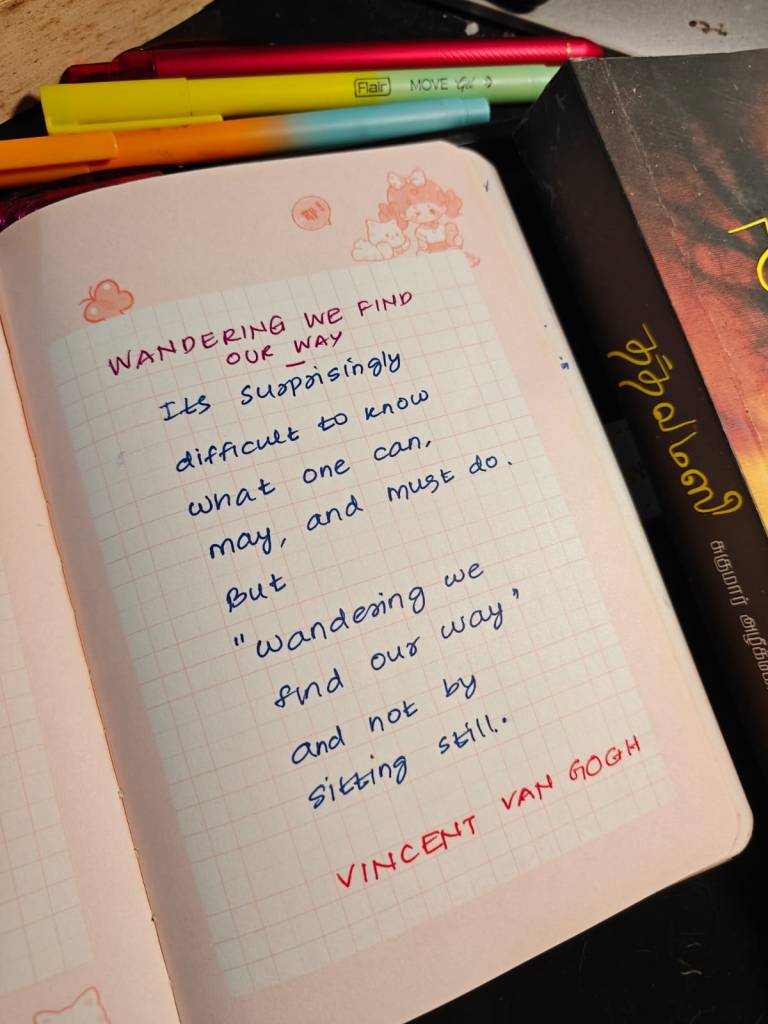 Flair MOVE Gel
WANDERING WE FIND
OUR WAY
Its surprisingly
difficult to know
what one can,
may, and must do.
But
"wandering we
find our way"
and not by
sitting still.
VINCENT VAN GOGH
சுகுமார் அழீக்கோடு